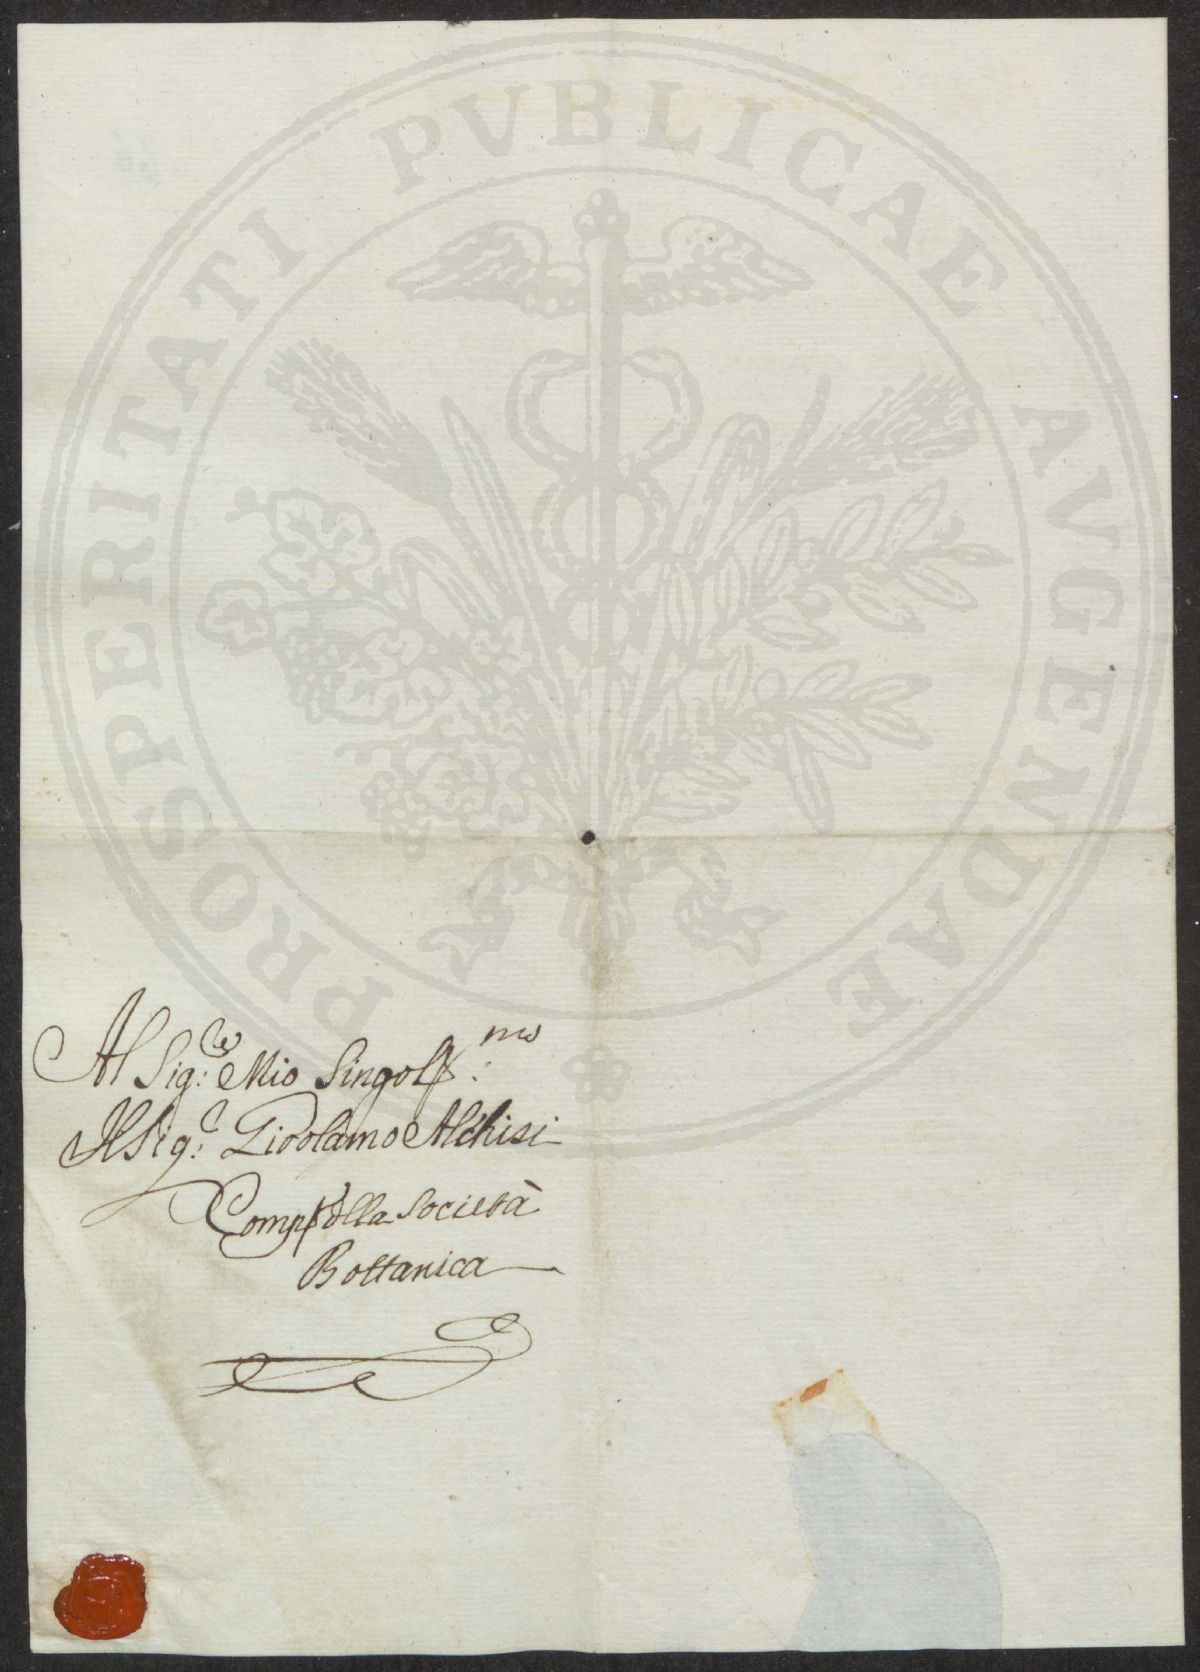 PROSPERITATI PVBLICAE AVGENDAE
Al Sig:re Mio Singol:mo
Il Sig:r Girolamo Alchisi
Società
Bottanica